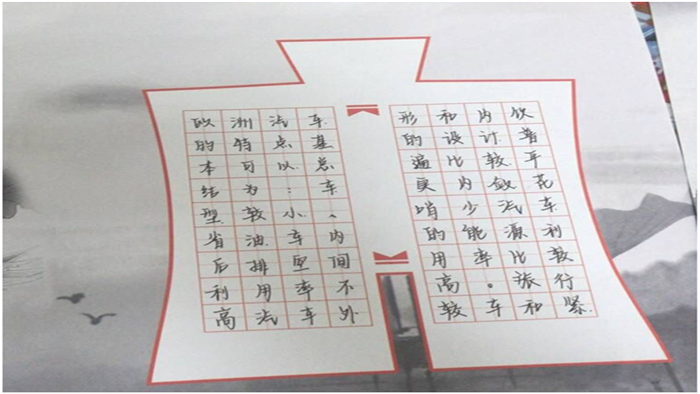 欧洲汽车
的特点基
本可以总
结为：车
型较小、
省油车内
后排空间
利用率不
高汽车外
形和内饰
的设计普
遍比较平
实内敛花
哨少汽车
的能源利
用率比较
高。旅行
较车和紧